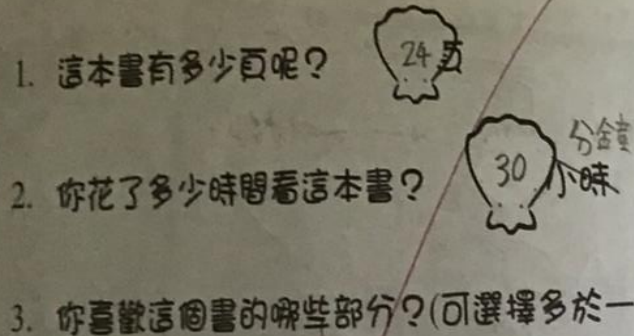 1. 這本書有多少頁呢? 24 頁
分鐘
2. 你花了多少時間看這本書? 30 小時
3. 你喜歡這個書的哪些部分?(可選擇多於一